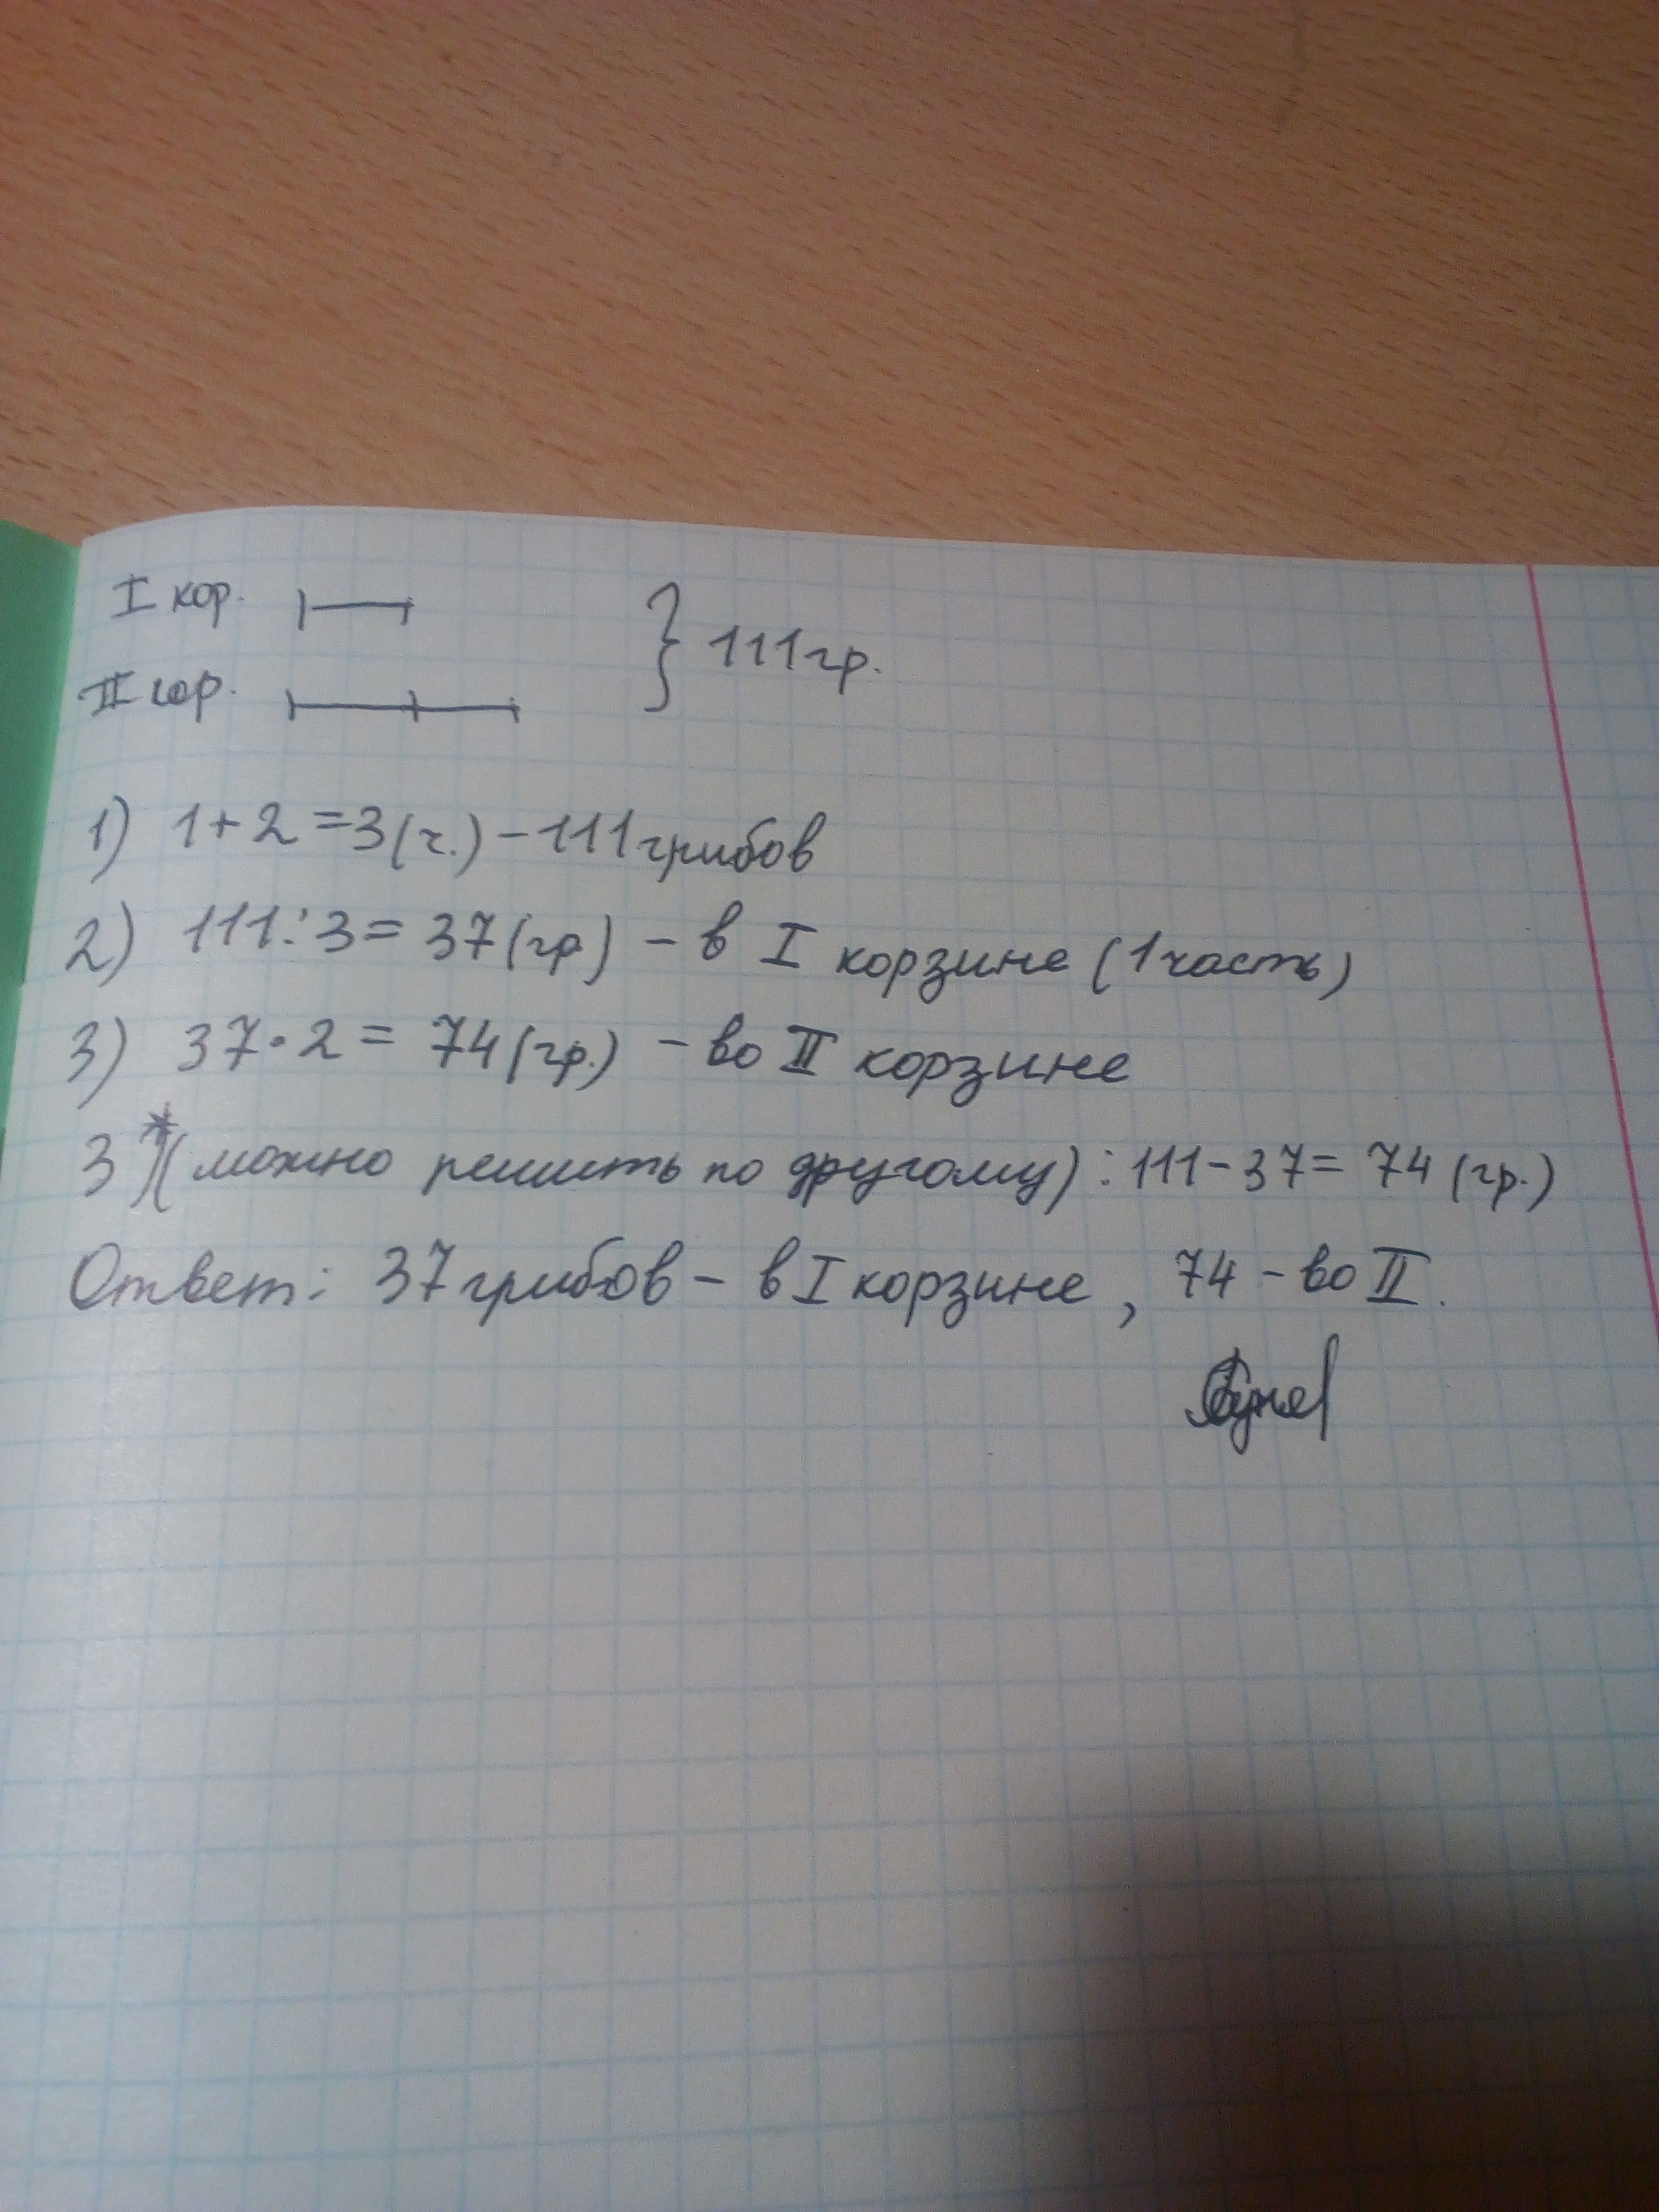 I кор.
II кор.
} 111 гр.
1) 1 + 2 = 3 (ч.) – 111 грибов
2) 111 : 3 = 37 (гр) – в I корзине (1 часть)
3) 37 · 2 = 74 (гр.) – во II корзине
3*) (можно решить по другому) : 111 – 37 = 74 (гр.)
Ответ: 37 грибов – в I корзине, 74 – во II.